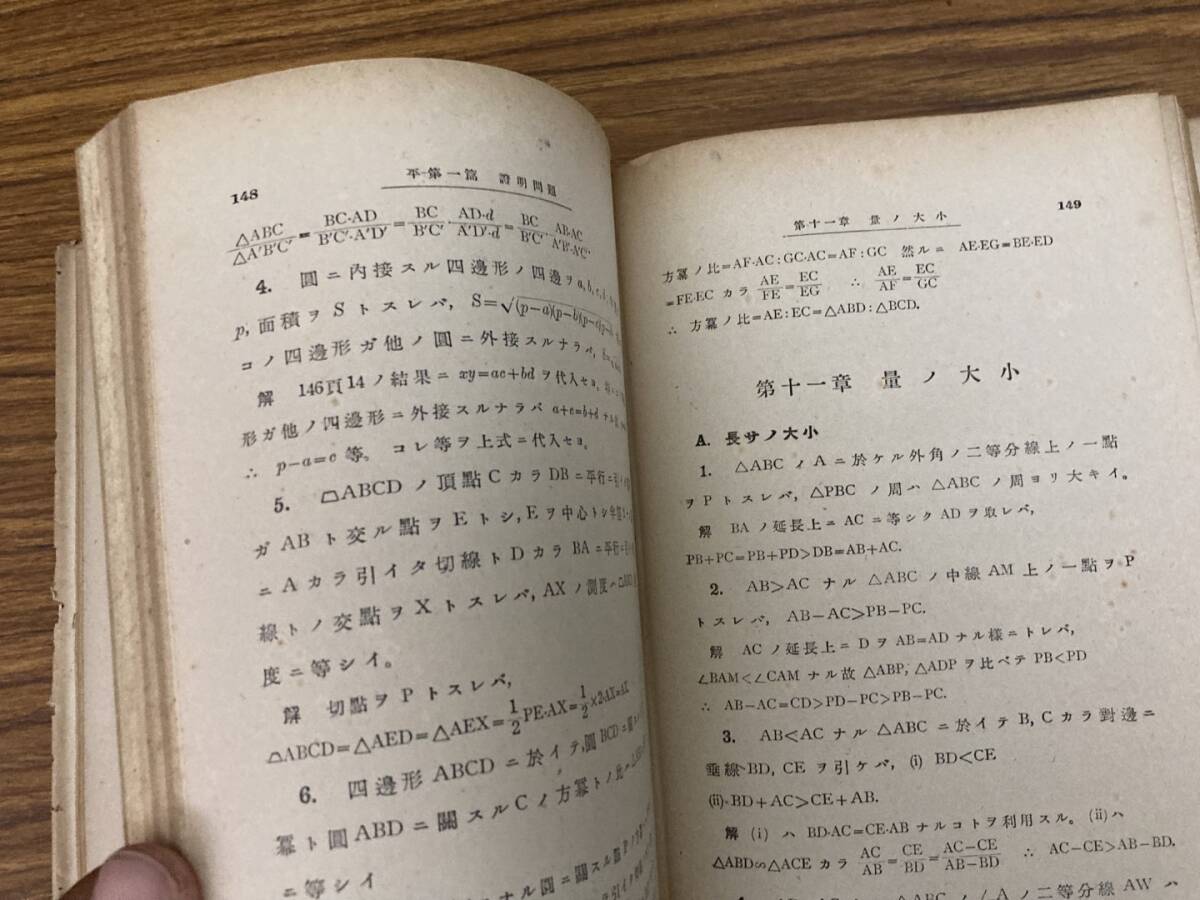 148
平 第一篇 證明問題
△ABC/△A'B'C' = BC·AD/B'C'·A'D' = BC/B'C' · AD·d/A'D'·d = BC/B'C' · AB·AC/A'B'·A'C'.
4. 圓ニ內接スル四邊形ノ四邊ヲ a, b, c,
p, 面積ヲ S トスレバ, S=√(p−a)(p−b)(p−c)
コノ四邊形ガ他ノ圓ニ外接スルナラバ,
解 146頁14ノ結果ニ xy=ac+bd ヲ代入セヨ.
形ガ他ノ四邊形ニ外接スルナラバ a+c=b+d ナル
∴ p−a=c 等。 コレ等ヲ上式ニ代入セヨ。
5. ▱ABCD ノ頂點 C カラ DB ニ平行ニ引
ガ AB ト交ル點ヲ E トシ, E ヲ中心トシ
ニ A カラ引イタ切線ト D カラ BA ニ平行ニ
線トノ交點ヲ X トスレバ, AX ノ測度ハ
度ニ等シイ。
解 切點ヲ P トスレバ,
▱ABCD=△AED=△AEX=1/2 PE·AX=1/2×2·AX=AX
6. 四邊形 ABCD ニ於イテ, 圓 BCD ニ
冪ト圓 ABD ニ關スル C ノ方冪トノ比ハ
ニ等シイ
ナル圓ニ關スル
第十一章 量ノ大小
149
方冪ノ比=AF·AC : GC·AC=AF : GC 然ルニ AE·EG=BE·ED
=FE·EC カラ AE/FE=EC/EG ∴ AE/AF=EC/GC
∴ 方冪ノ比=AE : EC=△ABD : △BCD.
第十一章 量ノ大小
A. 長サノ大小
1. △ABC ノ A ニ於ケル外角ノ二等分線上ノ一點
ヲ P トスレバ, △PBC ノ周ハ △ABC ノ周ヨリ大キイ。
解 BA ノ延長上ニ AC ニ等シク AD ヲ取レバ,
PB+PC=PB+PD>DB=AB+AC.
2. AB>AC ナル △ABC ノ中線 AM 上ノ一點ヲ P
トスレバ, AB−AC>PB−PC.
解 AC ノ延長上ニ D ヲ AB=AD ナル樣ニトレバ,
∠BAM<∠CAM ナル故 △ABP, △ADP ヲ比ベテ PB<PD
∴ AB−AC=CD>PD−PC>PB−PC.
3. AB<AC ナル △ABC ニ於イテ B, C カラ對邊ニ
垂線 BD, CE ヲ引ケバ, (i) BD<CE
(ii) BD+AC>CE+AB.
解 (i) ハ BD·AC=CE·AB ナルコトヲ利用スル。 (ii) ハ
△ABD∽△ACE カラ AC/AB=CE/BD=AC−CE/AB−BD ∴ AC−CE>AB−BD.
△ABC ノ ∠A ノ二等分線 AW ハ